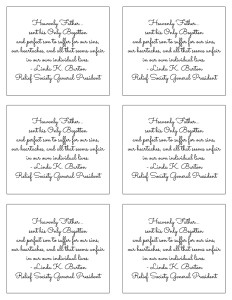 Heavenly Father...
sent his Only Begotten
and perfect son to suffer for our sins,
our heartaches, and all that seems unfair
in our own individual lives.
-Linda K. Burton
Relief Society General President
Heavenly Father...
sent his Only Begotten
and perfect son to suffer for our sins,
our heartaches, and all that seems unfair
in our own individual lives.
-Linda K. Burton
Relief Society General President
Heavenly Father...
sent his Only Begotten
and perfect son to suffer for our sins,
our heartaches, and all that seems unfair
in our own individual lives.
-Linda K. Burton
Relief Society General President
Heavenly Father...
sent his Only Begotten
and perfect son to suffer for our sins,
our heartaches, and all that seems unfair
in our own individual lives.
-Linda K. Burton
Relief Society General President
Heavenly Father...
sent his Only Begotten
and perfect son to suffer for our sins,
our heartaches, and all that seems unfair
in our own individual lives.
-Linda K. Burton
Relief Society General President
Heavenly Father...
sent his Only Begotten
and perfect son to suffer for our sins,
our heartaches, and all that seems unfair
in our own individual lives.
-Linda K. Burton
Relief Society General President